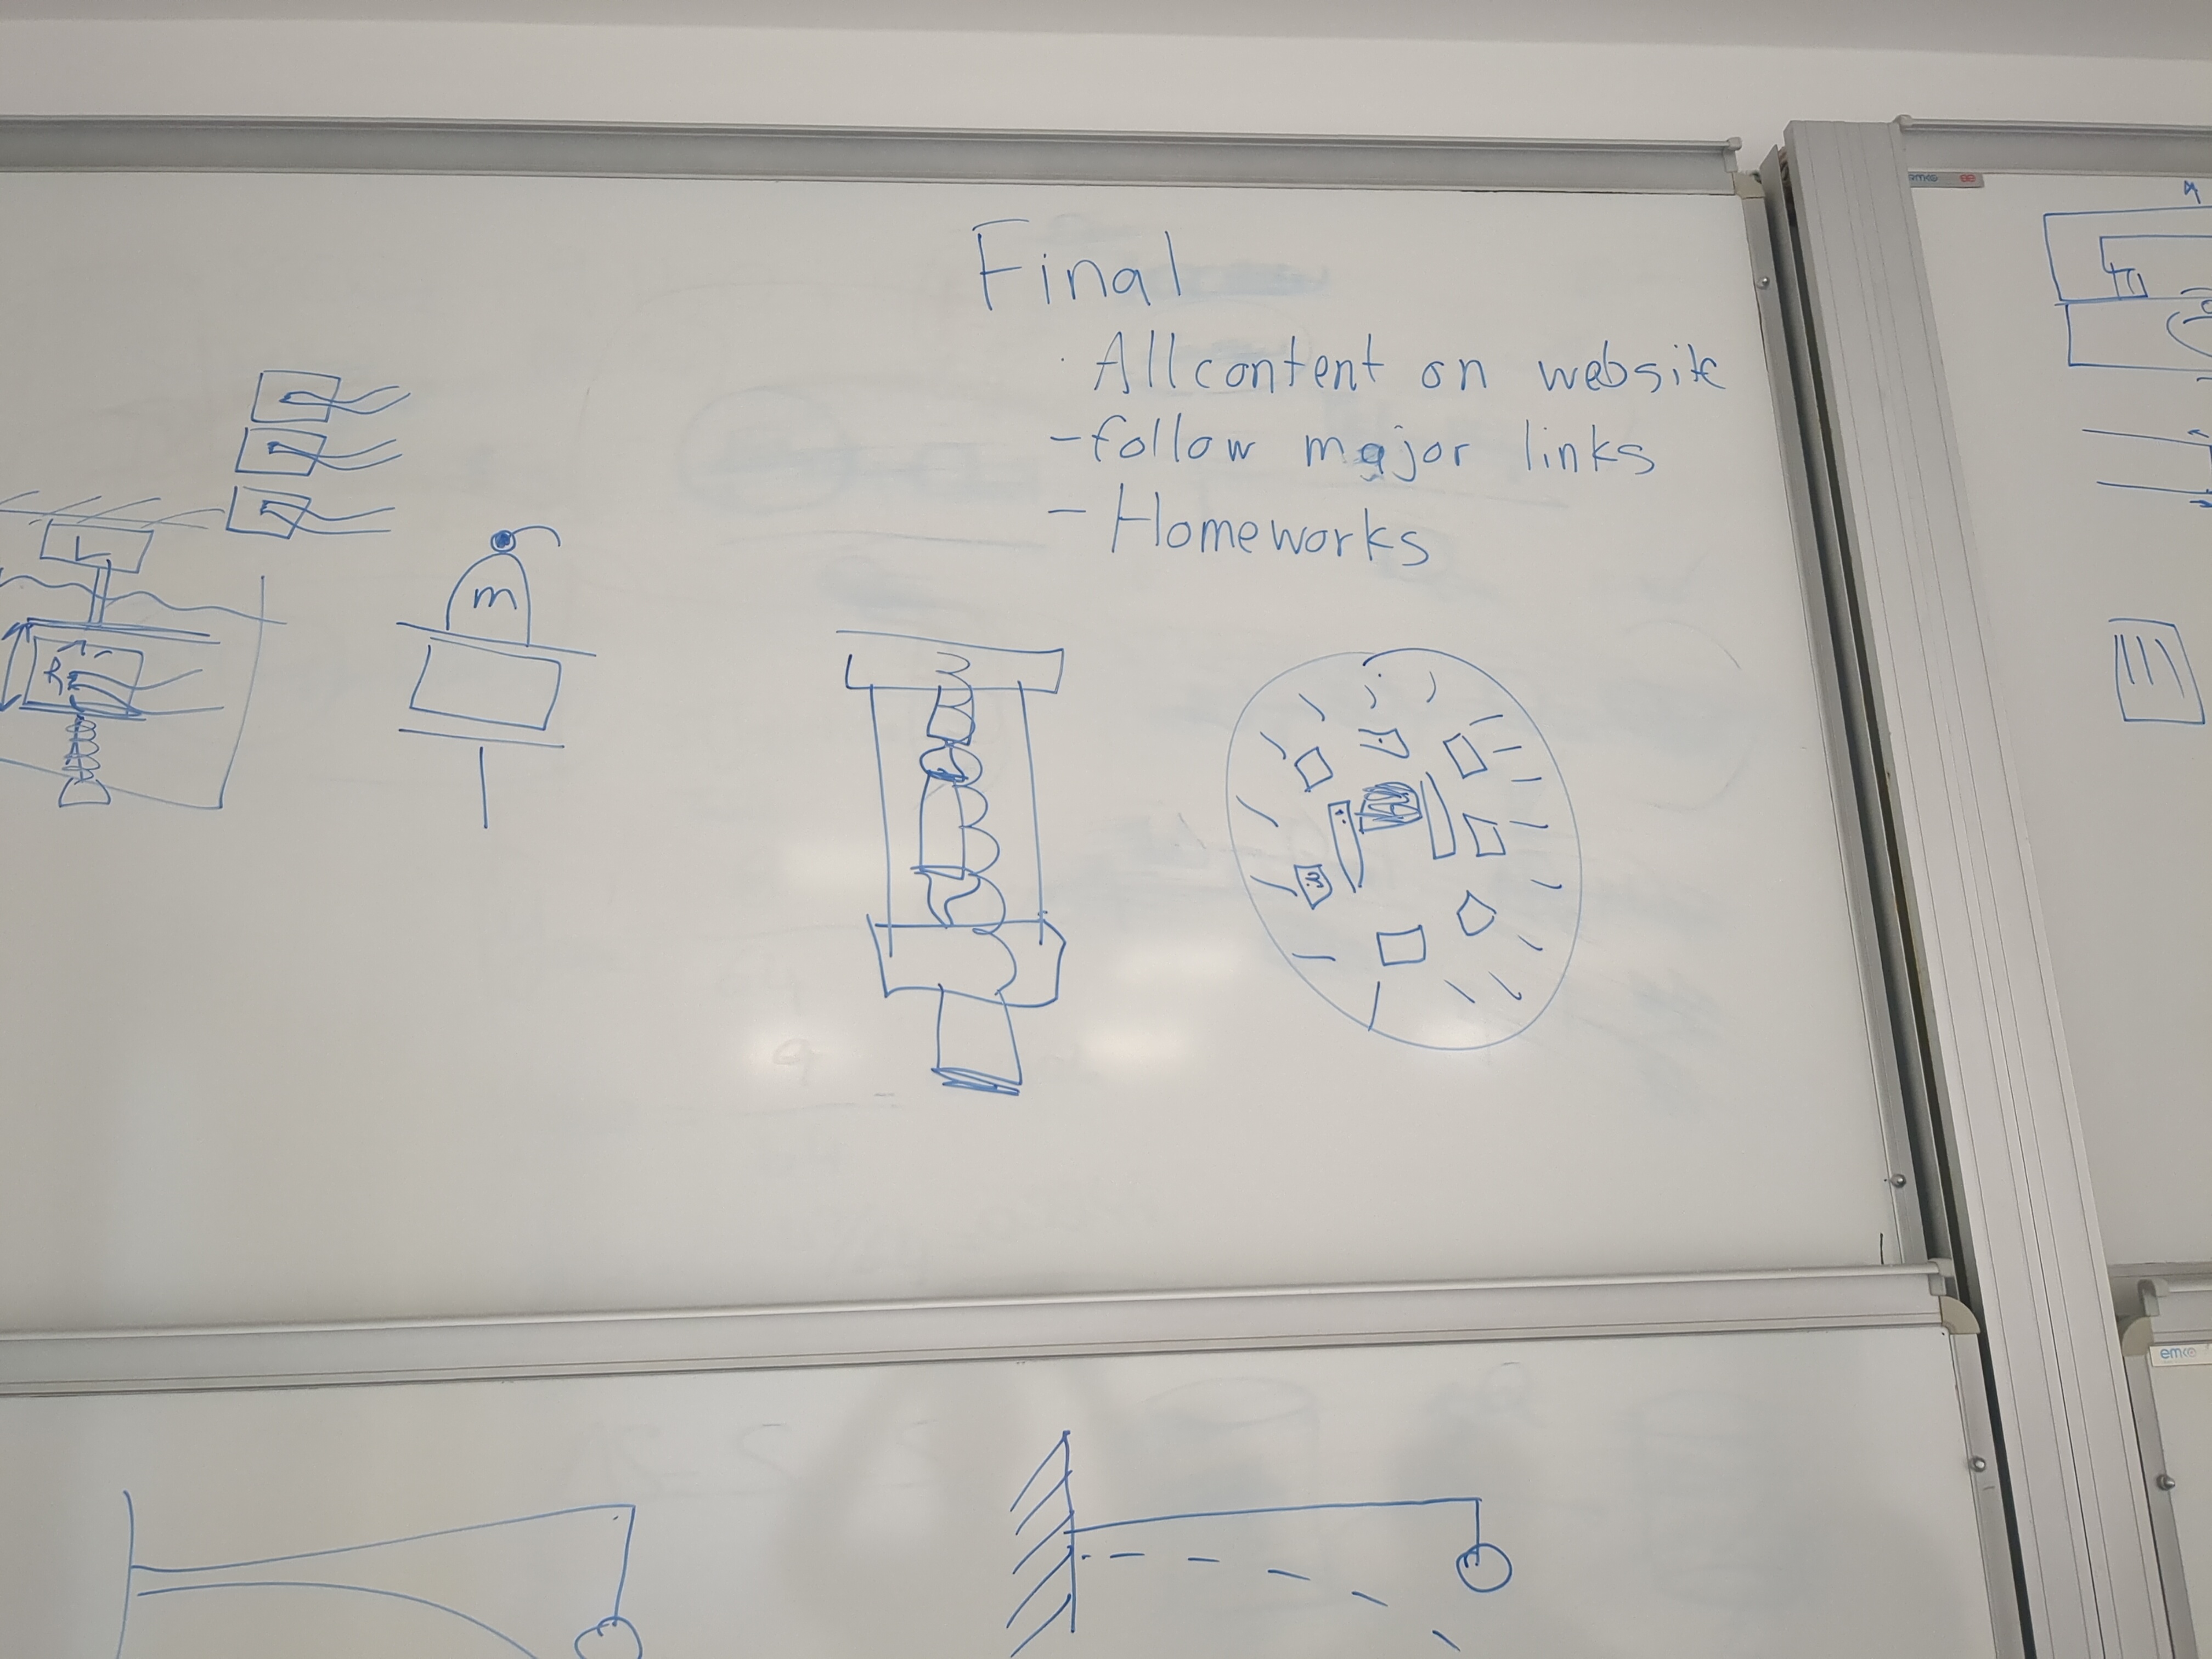 Final
· All content on website
- follow major links
- Homeworks
L
R
m
emco
emco